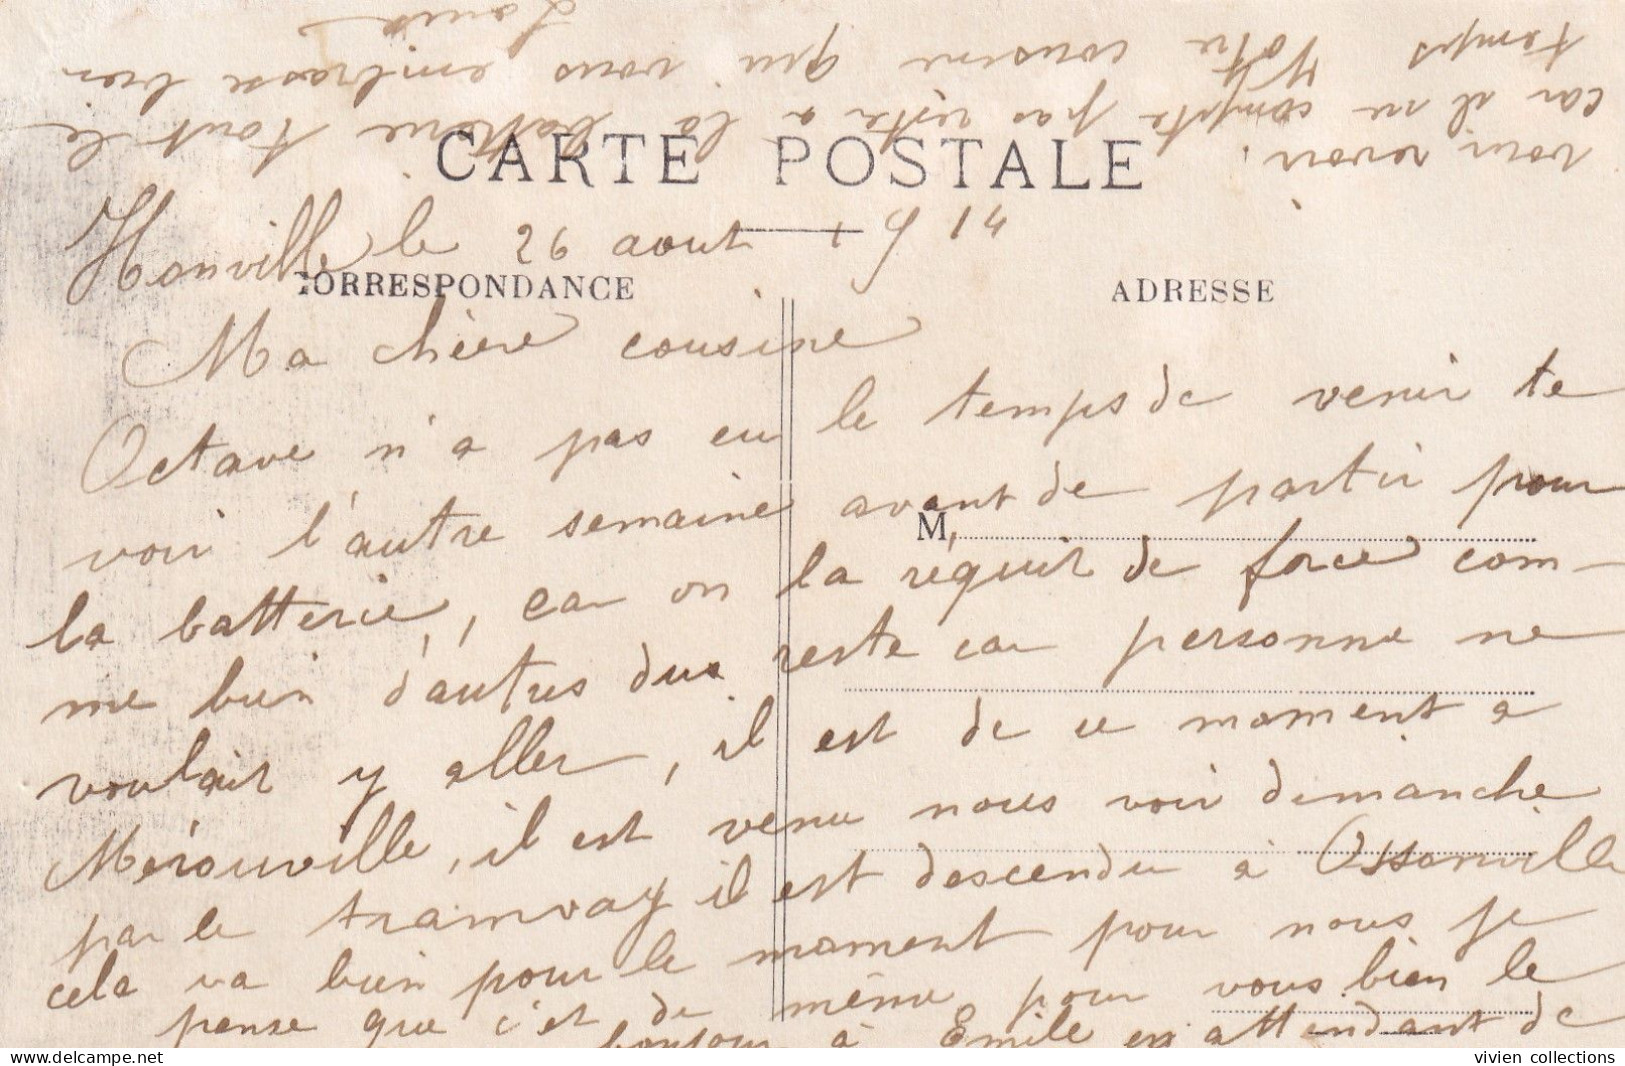 CARTE POSTALE
Honville le 26 aout 1914
CORRESPONDANCE
ADRESSE
Ma chère cousine
Octave n'a pas eu le temps de venir te
voir l'autre semaine avant de partir pour
M
la batterie, car on la réquit de force com-
me bien d'autres du reste car personne ne
voulait y aller, il est de ce moment a
Mérouville, il est venu nous voir dimanche
par le tramway il est descendu à Ossonville
cela va bien pour le moment pour nous je
pense que c'est de même pour vous bien le
bonjour à Emile en attendant de
vous revoir.
car il ne compte pas rester a la batterie tout le
temps Votre cousine qui vous embrasse bien
Louise
vivien collections